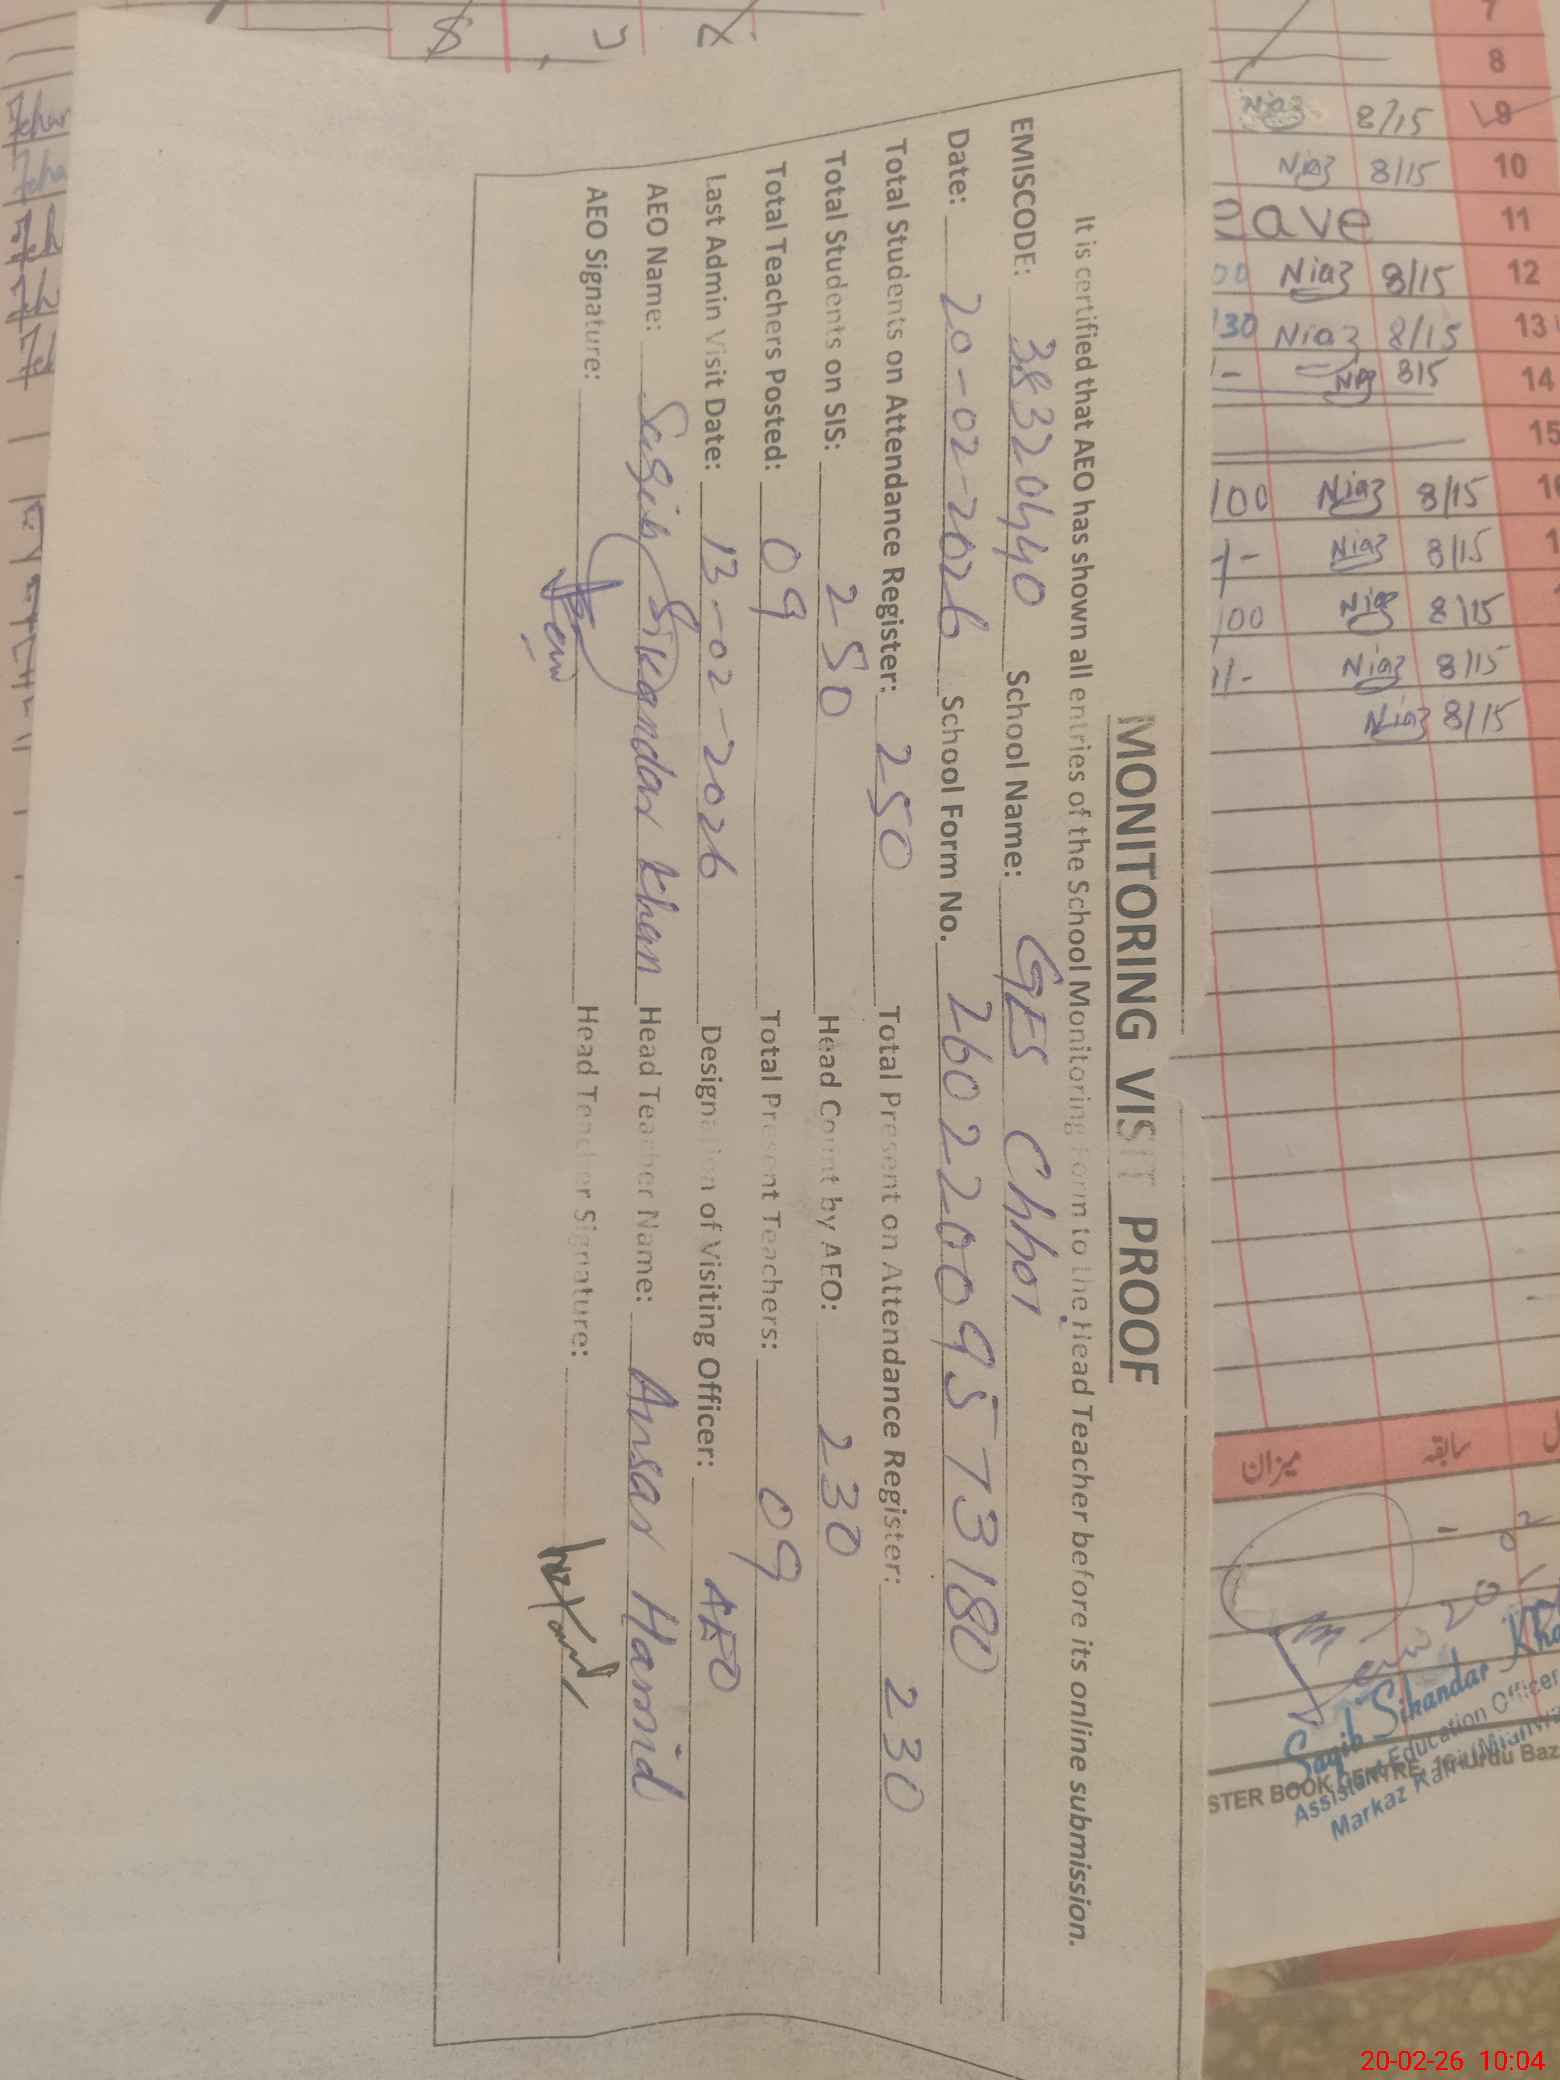 MONITORING VISIT PROOF
It is certified that AEO has shown all entries of the School Monitoring Form to the Head Teacher before its online submission.
EMISCODE: 38320440 School Name: GES Chhoi
Date: 20-02-2026 School Form No. 26022009573180
Total Students on Attendance Register: 250 Total Present on Attendance Register: 230
Total Students on SIS: 250 Head Count by AEO: 230
Total Teachers Posted: 09 Total Present Teachers: 09
Last Admin Visit Date: 13-02-2026 Designation of Visiting Officer: AEO
AEO Name: Saqib Sikandar Khan Head Teacher Name: Ansar Hamid
AEO Signature: Head Teacher Signature:
7
8
Niaz 8/15 9
Niaz 8/15 10
eave 11
00 Niaz 8/15 12
130 Niaz 8/15 13
815 14
15
100 Niaz 8/15
Niaz 8/15
100 Niaz 8/15
Niaz 8/15
Niaz 8/15
میزان سابقہ
Saqib Sikandar Kha
Assistant Education Officer
Markaz
STER BOOK CENTRE Urdu Baz
20-02-26 10:04